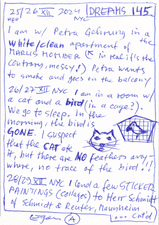 25/26 XII 2024 DREAMS 145
NYC
I am w/ Petra Gehring in a
white/clean apartment of the
in real it's the
contrary, messy!) Petra wants
to smoke and goes on the balcony
26/27 XII NYC I am in a room w/
a cat and a bird (in a cage?).
We go to sleep. In the
morning, the bird is
GONE. I suspect
that the CAT ate
it, but there are NO feathers any-
where, no trace of the bird!!!
28/29 XII NYC I lend a few STICKER
PAINTINGS (collages) to Herr Schmidt
of Schmidt & Reuter, Mannheim
A ... cat'd